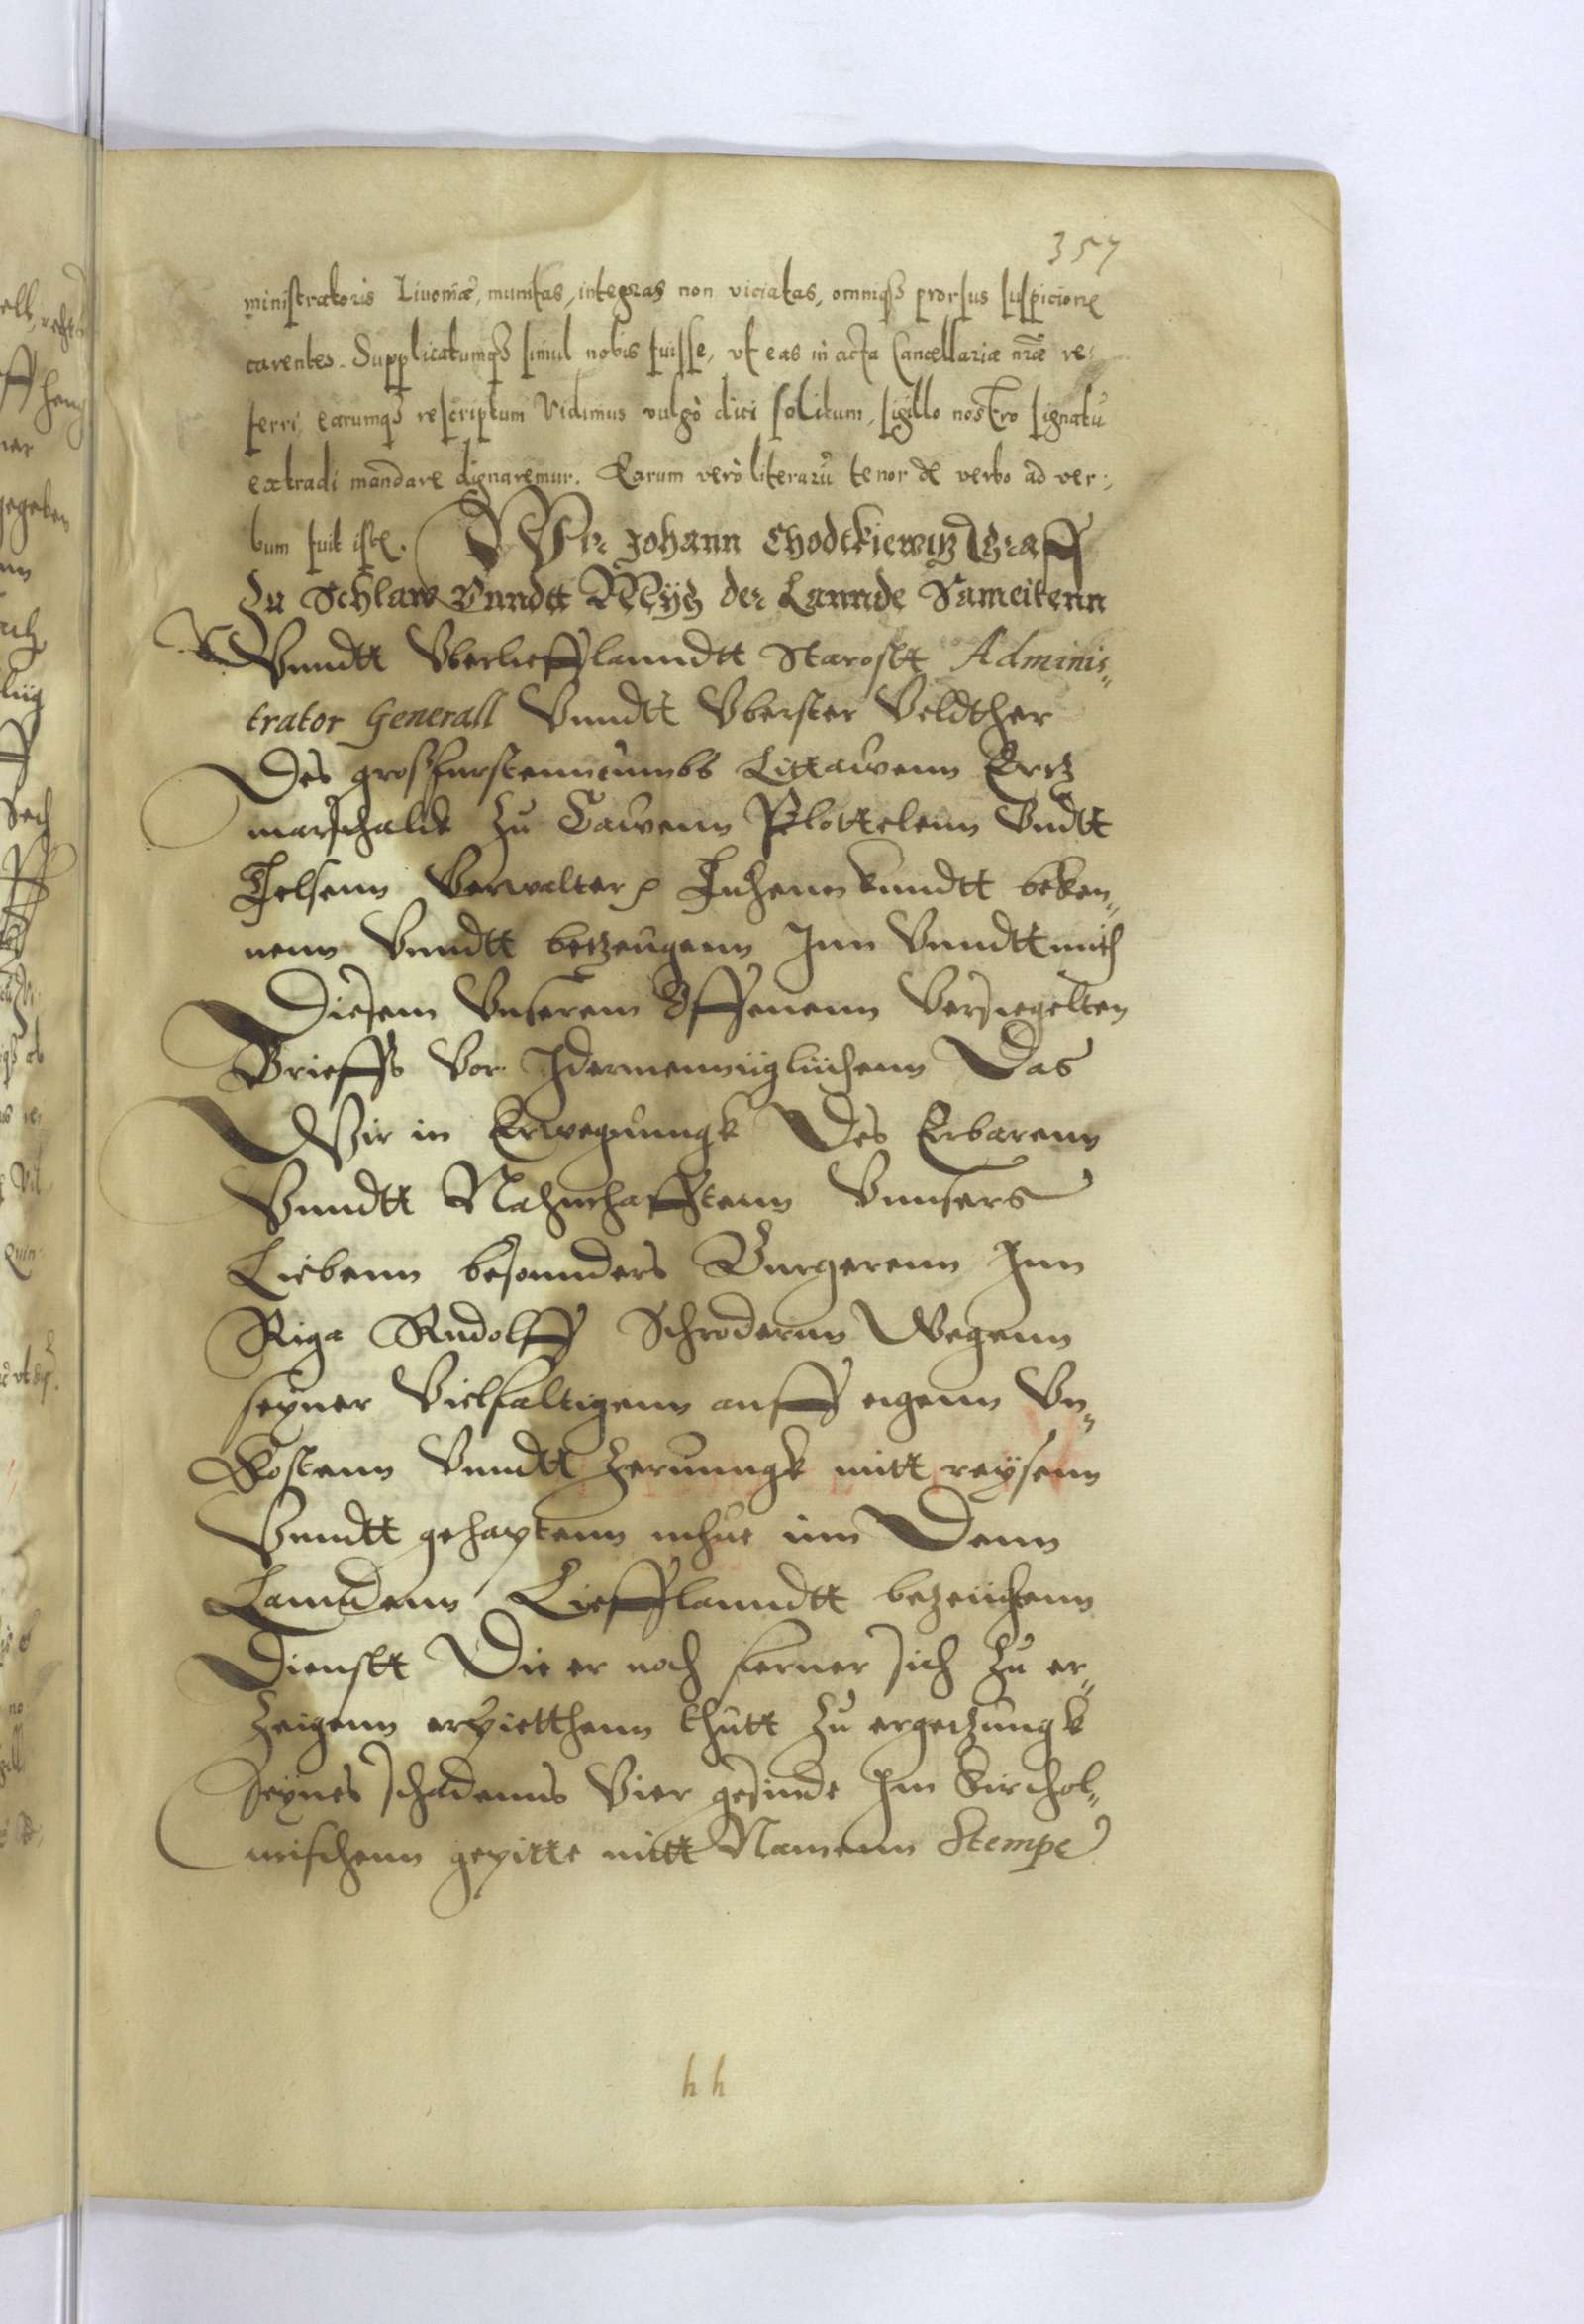 357
ministratoris Livoniæ, munitas, integras non viciatas, omniqꝫ prorsus suspicione
carentes. Supplicatumqꝫ simul nobis fuisse, vt eas in acta Cancellariæ nr̃æ re-
ferri, earumqꝫ rescriptum Vidimus vulgò dici solitum, sigillo nostro signatũ
extradi mandare dignaremur. Earum verò literarũ tenor de verbo ad ver-
bum fuit iste. Wir Johann Chodtkiewitz Graff
Zu Schlaw Vnndtt Mÿß der Lannde Sameitenn
Vnndtt Vberliefflanndtt Starostt Adminis„
trator Generall Vnndtt Vberster Veldther
Des grosfurstenntumbs Littawenn Ertz
marschalck Zu Cawenn Plottelenn Vndtt
Telsenn Verwalter Thuenn kundtt beken„
nenn Vnndtt betzeugenn Inn Vnndtt mith
Diesem Vnserem Offenenn Versiegelten
Brieffs Vor Idermennigklichenn Das
Wir in Erwegunngk Des Erbarenn
Vnndtt Nahmhafftenn Vnnsers
Liebenn besonnders Burgerenn Inn
Riga Rudolff Schrodernn Wegenn
seyner Vielfaltigenn auff eigenn Vn„
Kostenn Vnndtt Zerunngk mitt reysenn
Vnndtt gehaptenn mhue inn Denn
Lanndenn Liefflanndtt bezeichenn
Dienstt Die er noch ferner sich Zu er„
Zeigenn erpietthenn thutt Zu ergetzungk
seynes schadenns Vier gesinde Im Kirchol„
mischenn gepitte mitt Namenn Stempe
h h